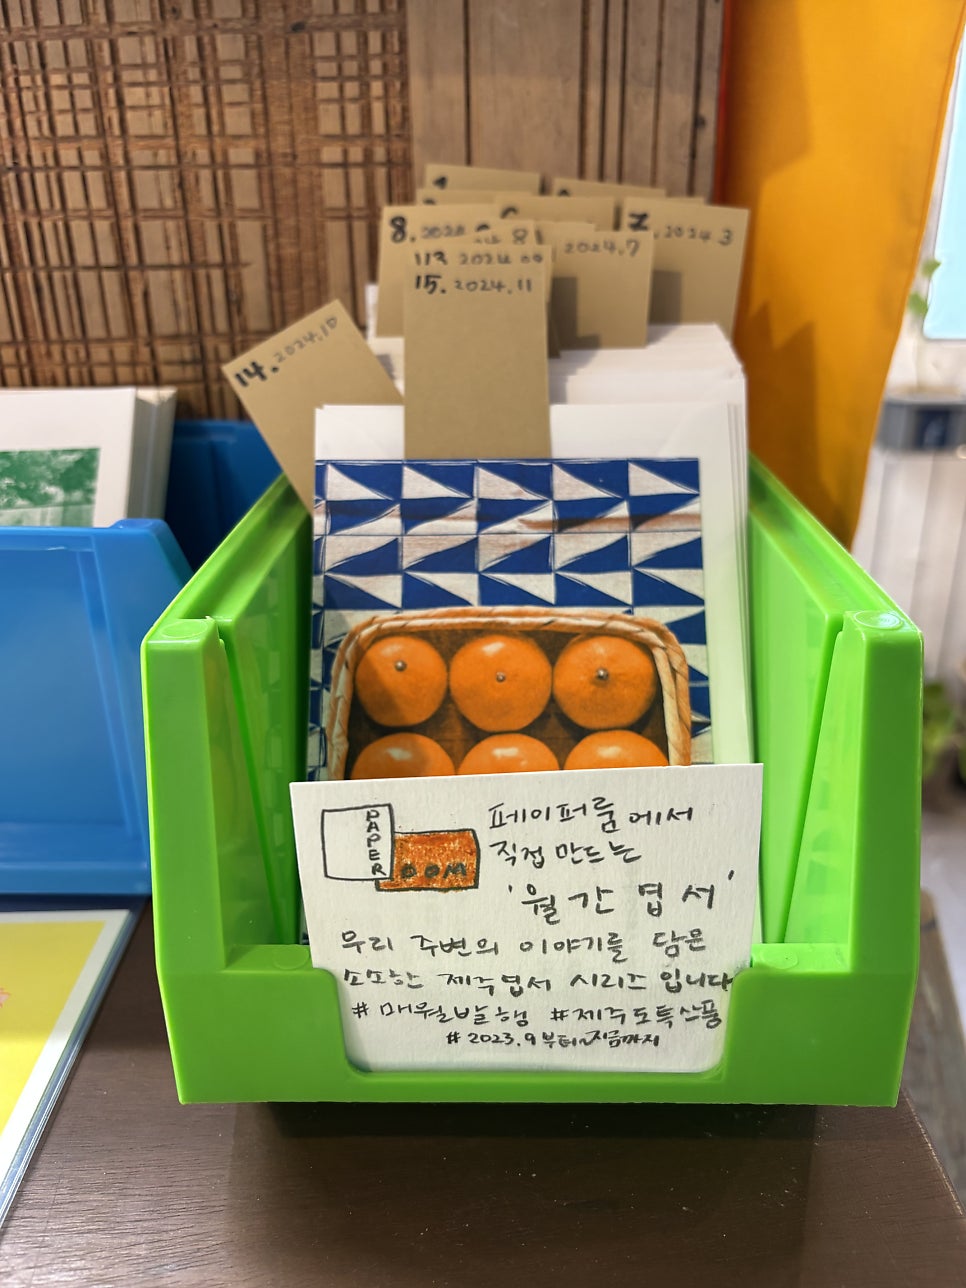 8. 2024
2024.7
2024.3
113 2024.09
15. 2024.11
14. 2024.10
PAPER
ROOM
페이퍼룸에서
직접 만드는
'월간 엽서'
우리 주변의 이야기를 담은
소소한 제주엽서 시리즈입니다
#매월발행 #제주도특산품
#2023.9부터~지금까지